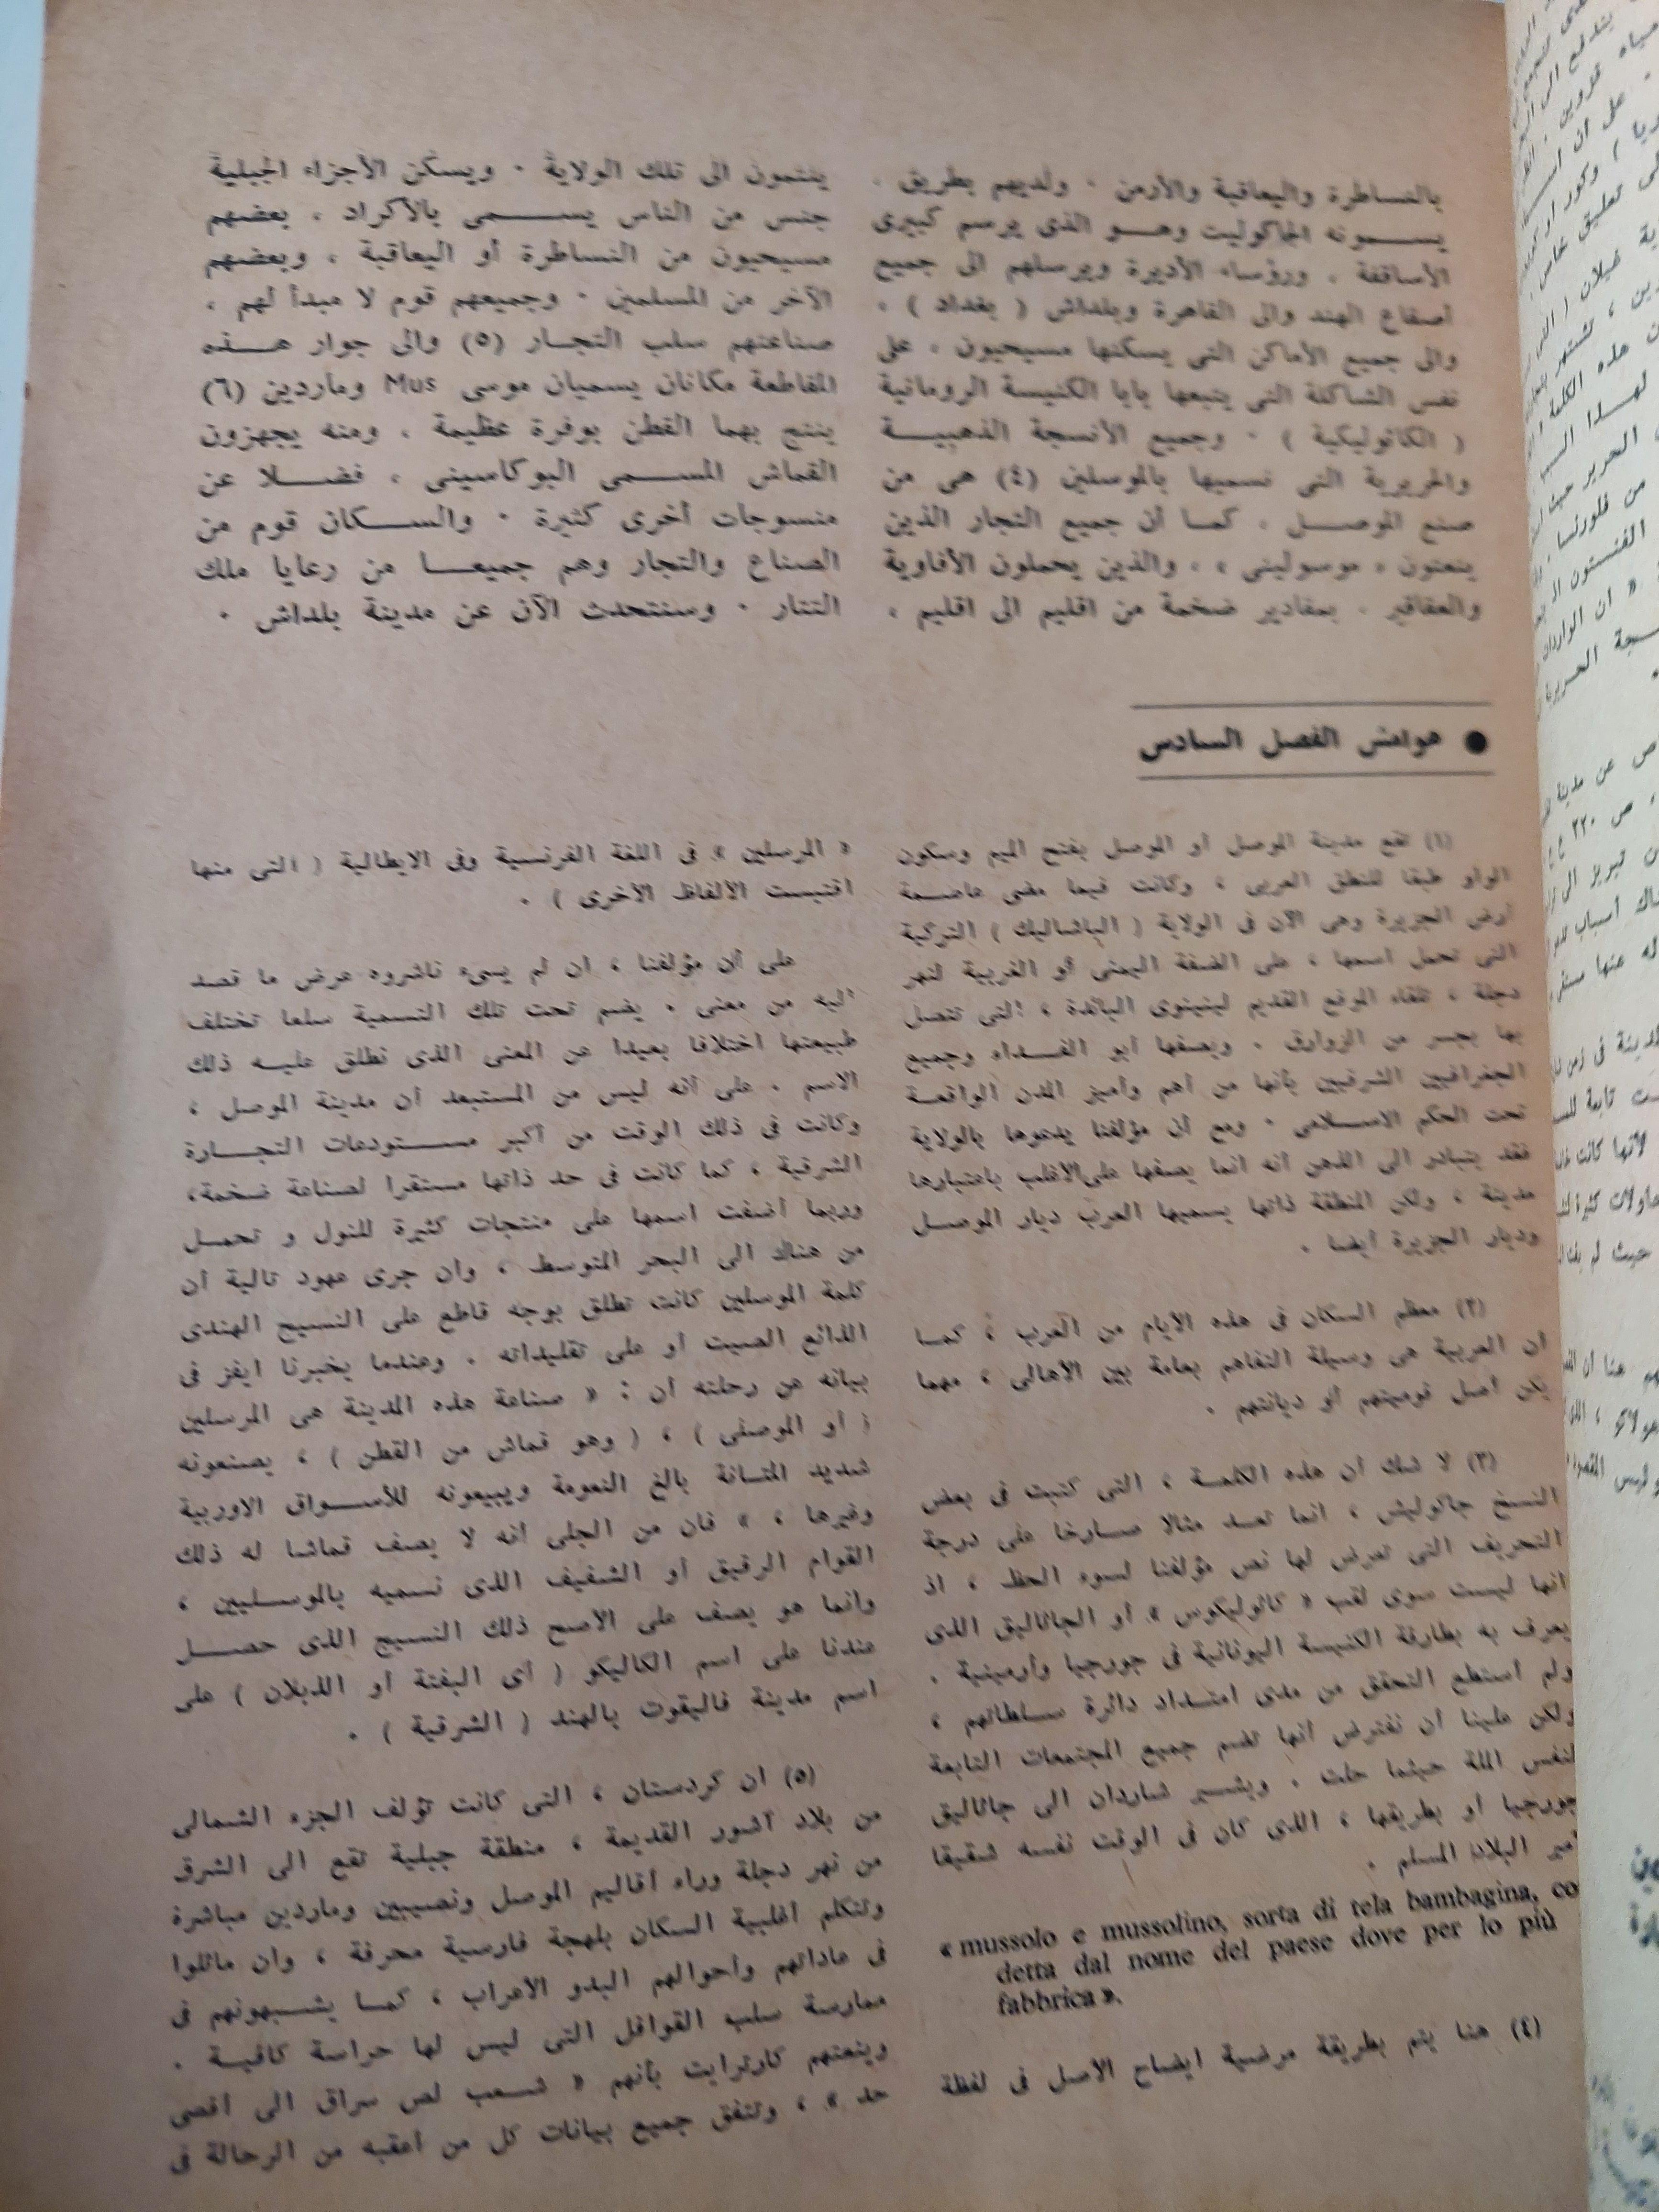 بالنساطرة واليعاقبة والأرمن ٠ ولديهم بطريق ،
يسمونه الجاكوليت وهو الذى يرسم كبيرى
الأساقفة ، ورؤساء الأديرة ويرسلهم الى جميع
أصقاع الهند والى القاهرة وبلداش ( بغداد ) ،
والى جميع الأماكن التى يسكنها مسيحيون ، على
نفس الشاكلة التى يتبعها بابا الكنيسة الرومانية
( الكاثوليكية ) ٠ وجميع الأنسجة الذهبية
والحريرية التى نسميها بالموسلين (٤) هى من
صنع الموصل ، كما أن جميع التجار الذين
ينعتون « موسولينى » ، والذين يحملون الأفاوية
والعقاقير ، بمقادير ضخمة من اقليم الى اقليم ،
ينتمون الى تلك الولاية ٠ ويسكن الأجزاء الجبلية
جنس من الناس يسمى بالأكراد ، بعضهم
مسيحيون من النساطرة أو اليعاقبة ، وبعضهم
الآخر من المسلمين ٠ وجميعهم قوم لا مبدأ لهم ،
صناعتهم سلب التجار (٥) والى جوار هذه
المقاطعة مكانان يسميان موسى Mus وماردين (٦)
ينتج بهما القطن بوفرة عظيمة ، ومنه يجهزون
القماش المسمى البوكاسينى ، فضلا عن
منسوجات أخرى كثيرة ٠ والسكان قوم من
الصناع والتجار وهم جميعا من رعايا ملك
التتار ٠ وسنتحدث الآن عن مدينة بلداش ٠
● هوامش الفصل السادس
(١) تقع مدينة الموصل أو الموصل بفتح الميم وسكون
الواو طبقا للنطق العربى ، وكانت فيما مضى عاصمة
أرض الجزيرة وهى الآن فى الولاية ( الباشاليك ) التركية
التى تحمل اسمها ، على الضفة اليمنى أو الغربية لنهر
دجلة ، تلقاء الموقع القديم لنينوى البائدة ، التى تتصل
بها بجسر من الزوارق ٠ ويصفها أبو الفداء وجميع
الجغرافيين الشرقيين بأنها من أهم وأميز المدن الواقعة
تحت الحكم الاسلامى ٠ ومع أن مؤلفنا يدعوها بالولاية
فقد يتبادر الى الذهن أنه انما يصفها على الأغلب باعتبارها
مدينة ، ولكن المنطقة ذاتها يسميها العرب ديار الموصل
وديار الجزيرة أيضا ٠
(٢) معظم السكان فى هذه الأيام من العرب ، كما
أن العربية هى وسيلة التفاهم بعامة بين الأهالى ، مهما
يكن أصل قوميتهم أو ديانتهم ٠
(٣) لا شك أن هذه الكلمة ، التى كتبت فى بعض
النسخ جاكوليش ، انما تعد مثالا صارخا على درجة
التحريف التى تعرض لها نص مؤلفنا لسوء الحظ ، اذ
انها ليست سوى لقب « كاثوليكوس » أو الجاثاليق الذى
يعرف به بطارقة الكنيسة اليونانية فى جورجيا وأرمينية ٠
ولم أستطع التحقق من مدى امتداد دائرة سلطانهم ،
ولكن علينا أن نفترض أنها تضم جميع المجتمعات التابعة
لنفس الملة حيثما حلت ٠ ويشير شاردان الى جاثاليق
جورجيا أو بطريقها ، الذى كان فى الوقت نفسه شقيقا
أمير البلاد المسلم ٠
« mussolo e mussolino, sorta di tela bambagina, co
detta dal nome del paese dove per lo più
fabbrica ».
(٤) هنا يتم بطريقة مرضية ايضاح الأصل فى لفظة
« المرسلين » فى اللغة الفرنسية وفى الايطالية ( التى منها
اقتبست الألفاظ الأخرى ) ٠
على أن مؤلفنا ، ان لم يسىء ناشروه عرض ما قصد
اليه من معنى ، يضم تحت تلك التسمية سلعا تختلف
طبيعتها اختلافا بعيدا عن المعنى الذى نطلق عليه ذلك
الاسم ٠ على أنه ليس من المستبعد أن مدينة الموصل ،
وكانت فى ذلك الوقت من أكبر مستودعات التجارة
الشرقية ، كما كانت فى حد ذاتها مستقرا لصناعة ضخمة،
وربما أضفت اسمها على منتجات كثيرة للنول و تحمل
من هناك الى البحر المتوسط ، وان جرى عهود تالية أن
كلمة الموسلين كانت تطلق بوجه قاطع على النسيج الهندى
الذائع الصيت أو على تقليداته ٠ وعندما يخبرنا ايفز فى
بيانه عن رحلته أن : « صناعة هذه المدينة هى المرسلين
( أو الموصلى ) ، ( وهو قماش من القطن ) ، يصنعونه
شديد المتانة بالغ النعومة ويبيعونه للأسواق الاوربية
وغيرها ، » فان من الجلى أنه لا يصف قماشا له ذلك
القوام الرقيق أو الشفيف الذى نسميه بالموسليين ،
وانما هو يصف على الأصح ذلك النسيج الذى حصل
عندنا على اسم الكاليكو ( أى البفتة أو الدبلان ) على
اسم مدينة قاليقوت بالهند ( الشرقية ) ٠
(٥) ان كردستان ، التى كانت تؤلف الجزء الشمالى
من بلاد آشور القديمة ، منطقة جبلية تقع الى الشرق
من نهر دجلة وراء أقاليم الموصل ونصيبين وماردين مباشرة
وتتكلم أغلبية السكان بلهجة فارسية محرفة ، وان ماثلوا
فى عاداتهم وأحوالهم البدو الأعراب ، كما يشبهونهم فى
ممارسة سلب القوافل التى ليس لها حراسة كافية ٠
وينعتهم كارترايت بأنهم « شعب لص سراق الى أقصى
حد » ، وتتفق جميع بيانات كل من أعقبه من الرحالة فى